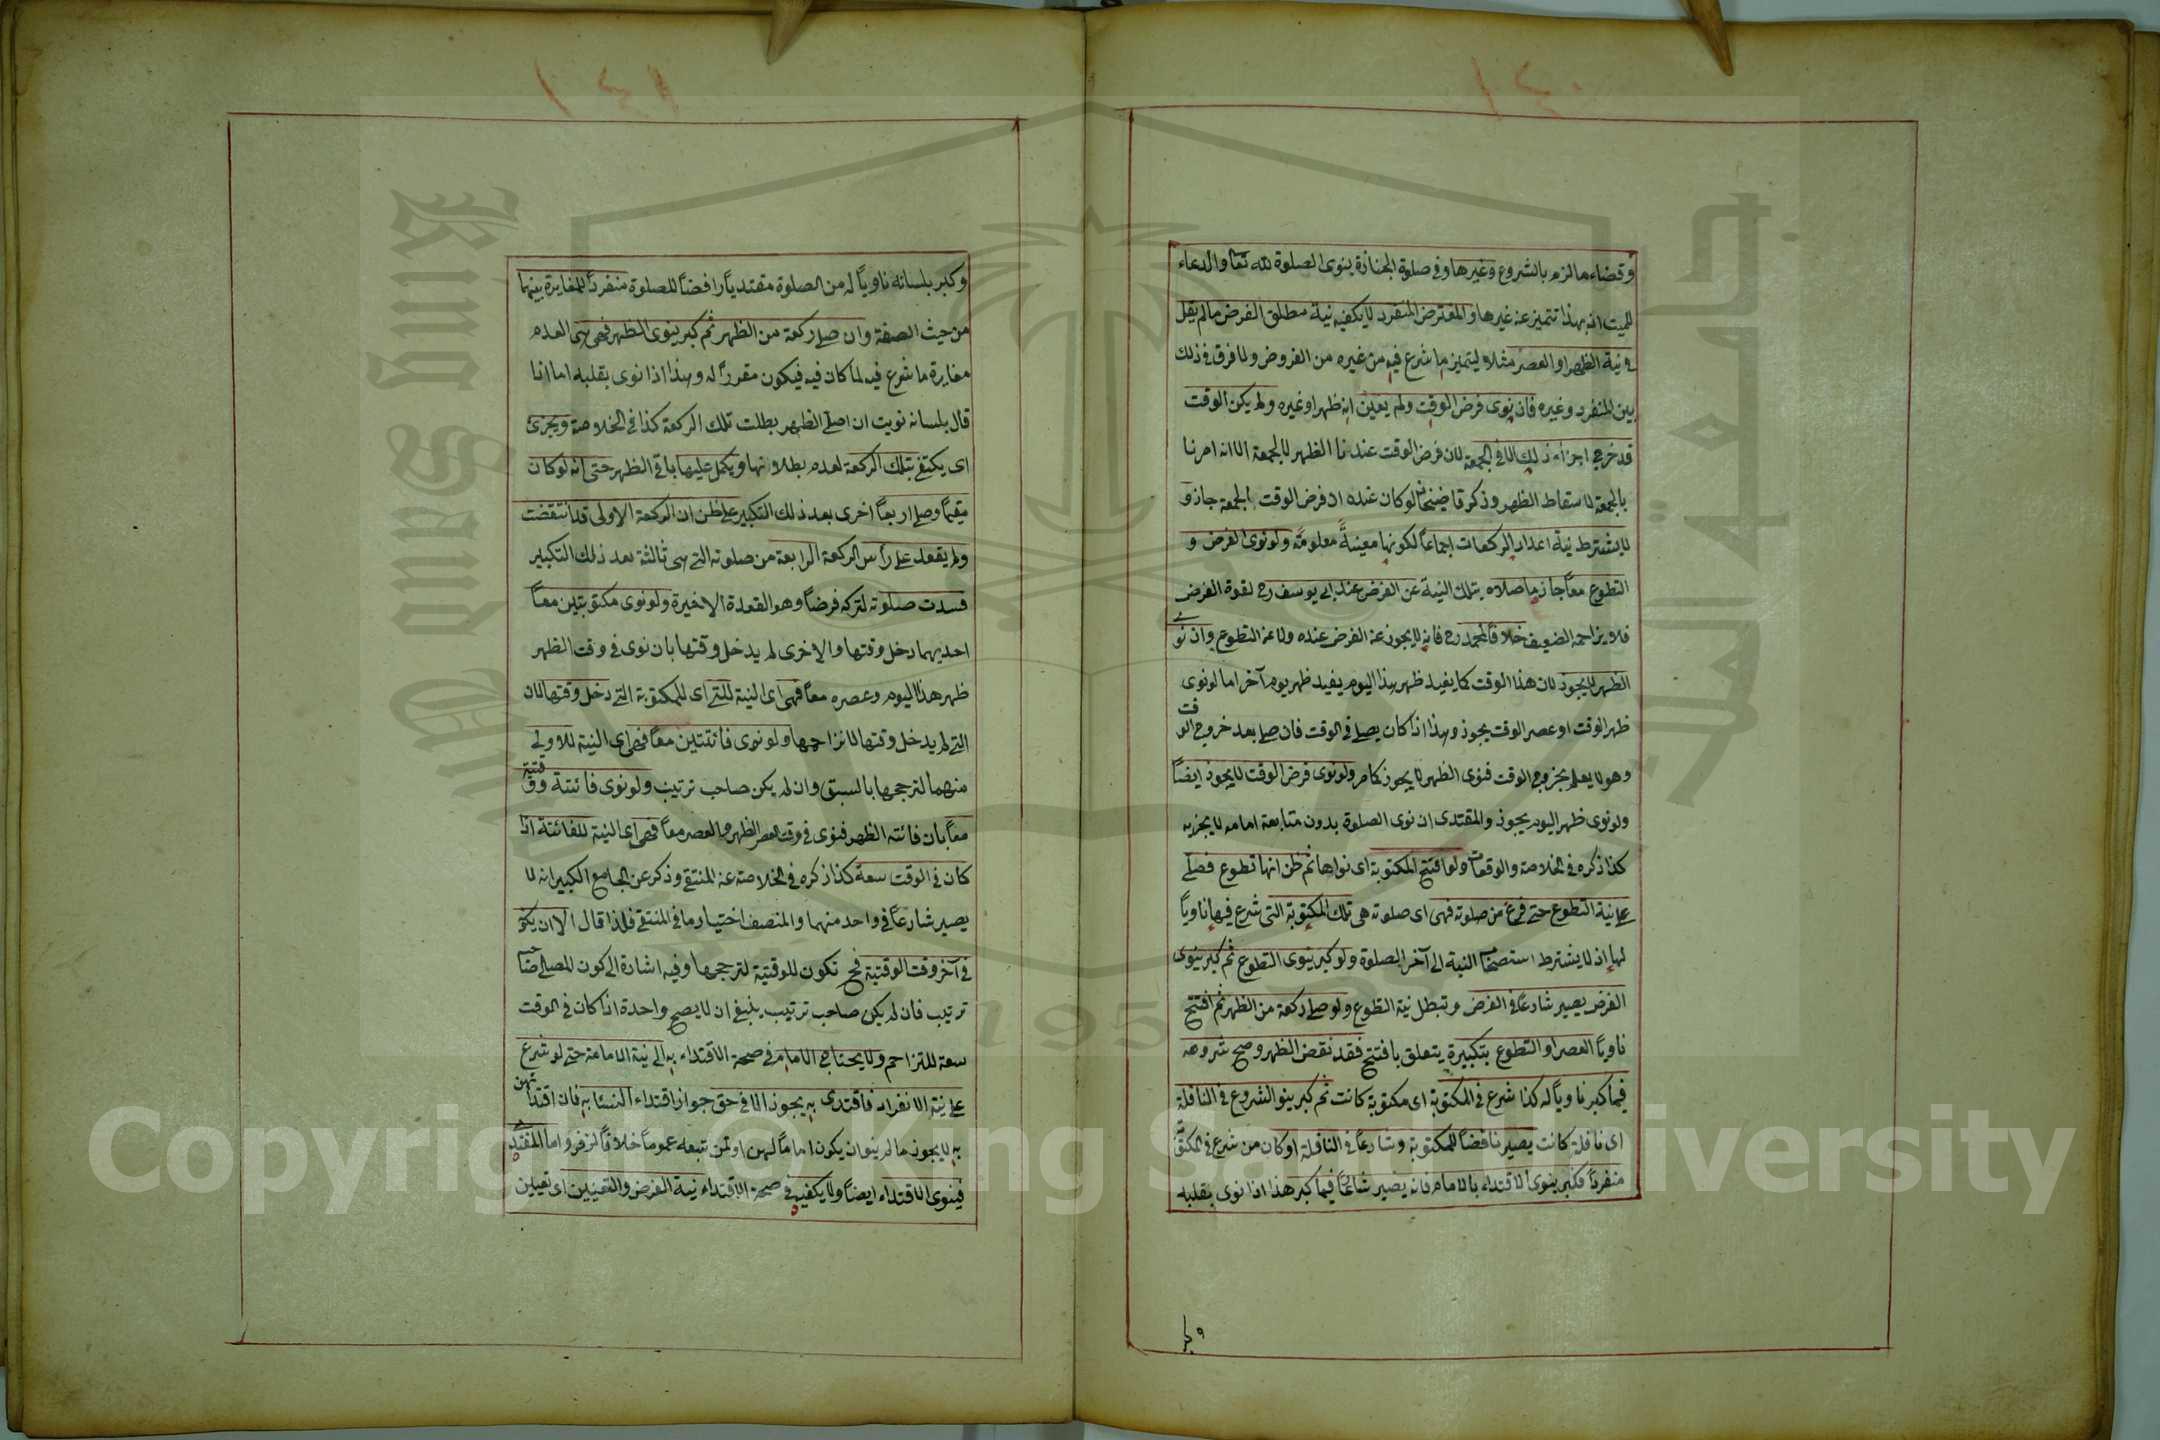 ١٤٠
وقضاء ما لزم بالشروع وغيرها وفي صلوة الجنازة ينوى الصلوة لله تعا والدعاء
للميت اذ بهذا تتميز عنه غيرها والمفترض المنفرد لا يكفيه نية مطلق الفرض ما لم يقل
في نية الظهر او العصر مثلا ليتميز ما شرع فيه من غيره من الفروض ولا فرق في ذلك
بين المنفرد وغيره فان نوى فرض الوقت ولم يعين انه ظهر او غيره ولم يكن الوقت
قد خرج اجزاه ذلك الا في الجمعة لان فرض الوقت عندنا الظهر لا الجمعة الا انه امرنا
بالجمعة لاسقاط الظهر وذكر قاضيخان لو كان عنده ان فرض الوقت الجمعة جاز و
لا يشترط نية اعداد الركعات اجماعا لكونها معينة معلومة ولو نوى الفرض و
التطوع معا جاز ما صلاه بتلك النية عن الفرض عند ابي يوسف رح لقوة الفرض
فلا يزاحمه الضعيف خلافا لمحمد رح فانه لا يجوز عنه الفرض عنده ولا عنه التطوع وان نوى
الظهر لا يجوز لان هذا الوقت كما يفيد ظهر هذا اليوم يفيد ظهر يوم آخر اما لو نوى
ظهر الوقت او عصر الوقت يجوز وهذا اذا كان يصلي في الوقت فان صلى بعد خروج الوقت
وهو لا يعلم بخروج الوقت فنوى الظهر لا يجوز كما مر ولو نوى فرض الوقت لا يجوز ايضا
ولو نوى ظهر اليوم يجوز والمقتدى ان نوى الصلوة بدون متابعة امامه لا يجزيه
كذا ذكره في الخلاصة والوقعات ولو افتتح المكتوبة اى نواها ثم ظن انها تطوع فصلى
على نية التطوع حتى فرغ من صلوته فهى اى صلوته هى تلك المكتوبة التى شرع فيها ناويا
لها اذ لا يشترط استصحاب النية الى آخر الصلوة ولو كبر ينوى التطوع ثم كبر ينوى
الفرض يصير شارعا في الفرض وتبطل نية التطوع ولو صلى ركعة من الظهر ثم افتتح
ناويا العصر او التطوع بتكبيرة يتعلق بافتتح فقد نقض الظهر وصح شروعه
فيما كبر ناويا له كذا شرع في المكتوبة اى مكتوبة كانت ثم كبر ينو الشروع في النافلة
اى نافلة كانت يصير ناقضا للمكتوبة وشارعا في النافلة او كان من شرع في المكتوبة
منفردا فكبر ينوى الاقتداء بالامام فانه يصير شارعا فيما كبر هذا اذا نوى بقلبه
١٤١
وكبر بلسانه ناويا له من الصلوة مقتديا رافضا للصلوة منفردا للمغايرة بينهما
من حيث الصفة وان صلى ركعة من الظهر ثم كبر ينوى الظهر فهى هى لعدم
مغايرة ما شرع فيه لما كان فيه فيكون مقررا له وهذا اذا نوى بقلبه اما اذا
قال بلسانه نويت ان اصلى الظهر بطلت تلك الركعة كذا في الخلاصة ويجزئ
اى يكتفى بتلك الركعة لعدم بطلانها ويكمل عليها باقى الظهر حتى انه لو كان
مقيما وصلى اربعا اخرى بعد ذلك التكبير على ظن ان الركعة الاولى قد انتقضت
ولم يقعد على رأس الركعة الرابعة من صلوته التى هى ثالثة بعد ذلك التكبير
فسدت صلوته لتركه فرضا وهو القعدة الاخيرة ولو نوى مكتوبتين معا
احديهما دخل وقتها والاخرى لم يدخل وقتها بان نوى في وقت الظهر
ظهر هذا اليوم وعصره معا فهى اى النية للتى اى للمكتوبة التى دخل وقتها لان
التى لم يدخل وقتها لا تزاحمها ولو نوى فائتتين معا فهى اى النية للاولى
منهما لترجحها بالسبق وان لم يكن صاحب ترتيب ولو نوى فائتة ووقتية
معا بان فاتته الظهر فنوى في وقت العصر الظهر والعصر معا فهى اى النية للفائتة اذا
كان في الوقت سعة كذا ذكره في الخلاصة عنه المنتقى وذكر عن الجامع الكبير انه لا
يصير شارعا في واحد منهما والمنصف اختيار ما في المنتقى فلذا قال الا ان يكون
في آخر وقت الوقتية فح تكون للوقتية لترجحها وفيه اشارة الى كون المصلى صاحب
ترتيب فان لم يكن صاحب ترتيب ينبغى ان لا يصح واحدة اذا كان في الوقت
سعة للتزاحم ولا يحتاج الامام في صحة الاقتداء به الى نية الامامة حتى لو شرع
على نية الانفراد فاقتدى به يجوز الا في حق جواز اقتداء النساء به فان اقتدائهن
به لا يجوز ما لم ينو ان يكون اماما لهن او لمن تبعه عموما خلافا لزفر واما المقتدى
فينوى الاقتداء ايضا ولا يكفيه في صحة الاقتداء نية الفرض والتعيين اى تعيين
Copyright © King Saud University
King Saud University
جامعة الملك سعود
1957